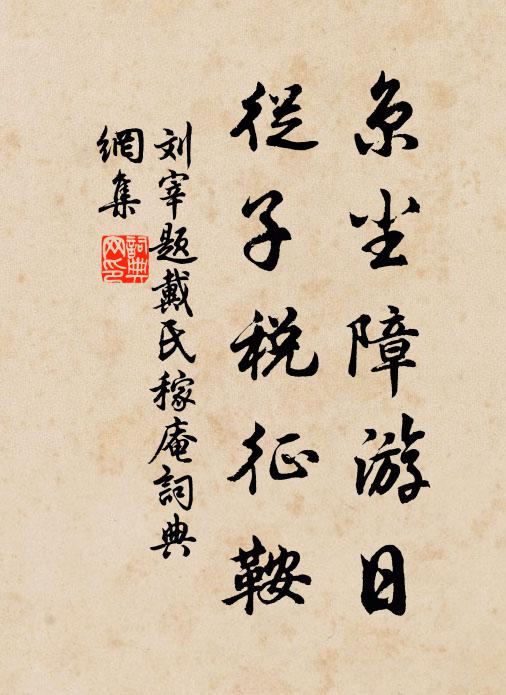 京尘障游日
從子税征鞍
刘宰题戴氏稼庵詞典
網集
詞典網印